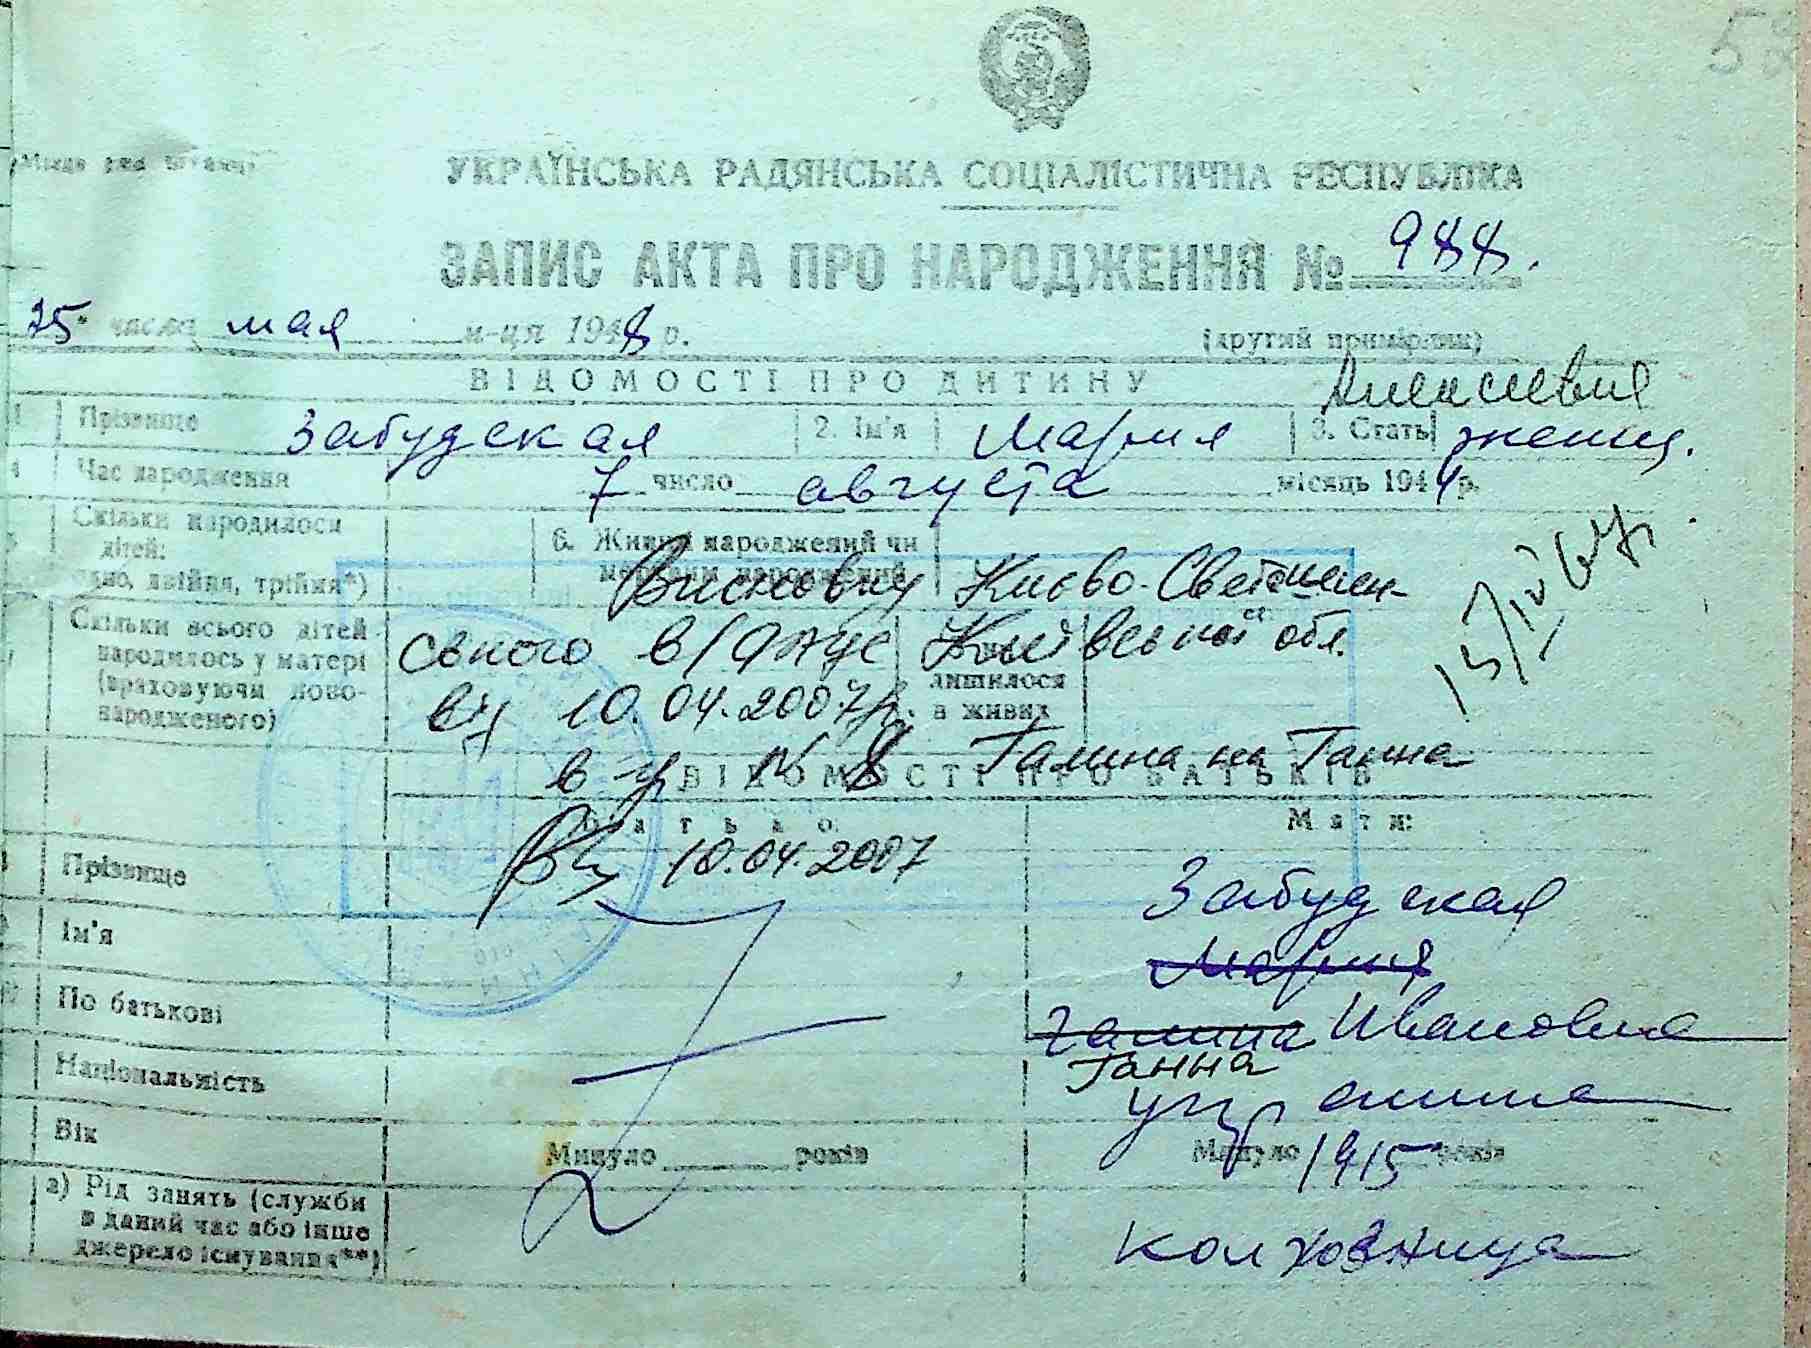 52
УКРАЇНСЬКА РАДЯНСЬКА СОЦІАЛІСТИЧНА РЕСПУБЛІКА
ЗАПИС АКТА ПРО НАРОДЖЕННЯ № 988.
25 числа мая м-ця 1948 р. (другий примірник)
ВІДОМОСТІ ПРО ДИТИНУ Алексеевна
1 Прізвище Забудская 2. Ім'я Мария 3. Стать женщ.
4 Час народження 7 число августа місяць 1944 р.
Скільки народилося дітей: 6. Живий народжений чи
одно, двійня, трійня*) мертвим народжений
Висновку Києво-Святошин-
Скільки всього дітей ського в/ РАЦС Київської обл.
народилось у матері
(враховуючи ново- лишилося
народженого) від 10.04.2007р. в живих
№ 8 Галина на Ганна
ВІДОМОСТІ ПРО БАТЬКІВ
Батько: Мати:
10.04.2007
Прізвище Забудская
Ім'я Мария
По батькові Галина Ивановна
Ганна
Національність украинка
Вік Минуло ______ років Минуло 1915 років
а) Рід занять (служби
в даний час або інше
джерело існування**) колхозница